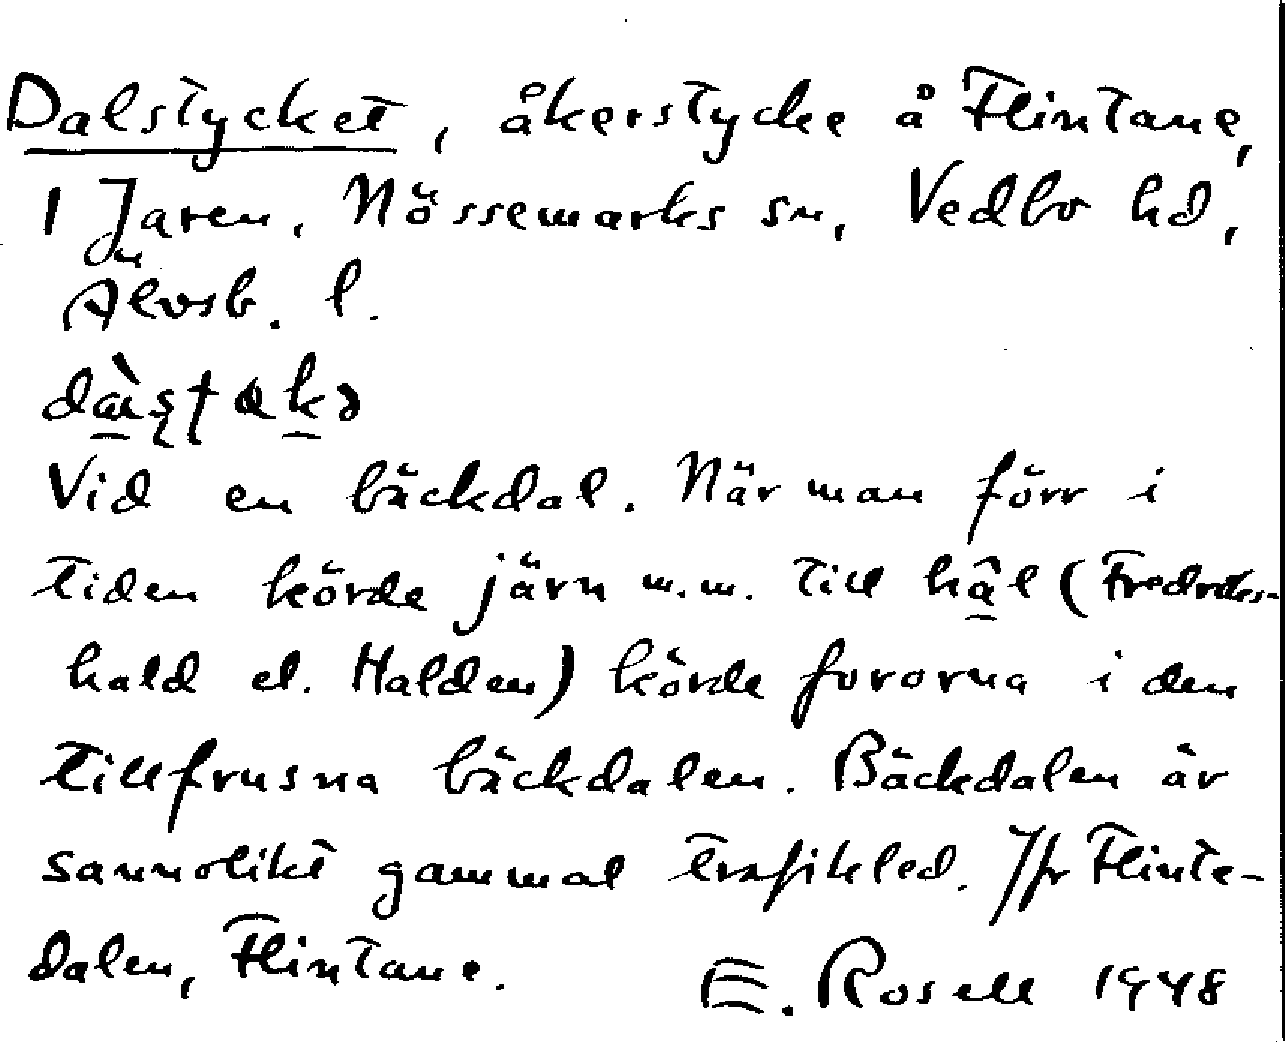 Dalstycket, åkerstycke å Flintane,
1 Jaren, Nössemarks sn, Vedbo hd,
Älvsb. l.
Vid en bäckdal. När man förr i
tiden körde järn m.m. till hâl (Fredriks-
hald el. Halden) körde fororna i den
tillfrusna bäckdalen. Bäckdalen är
sannolikt gammal trafikled. Jfr Flinte-
dalen, Flintane.
E. Rosell 1948